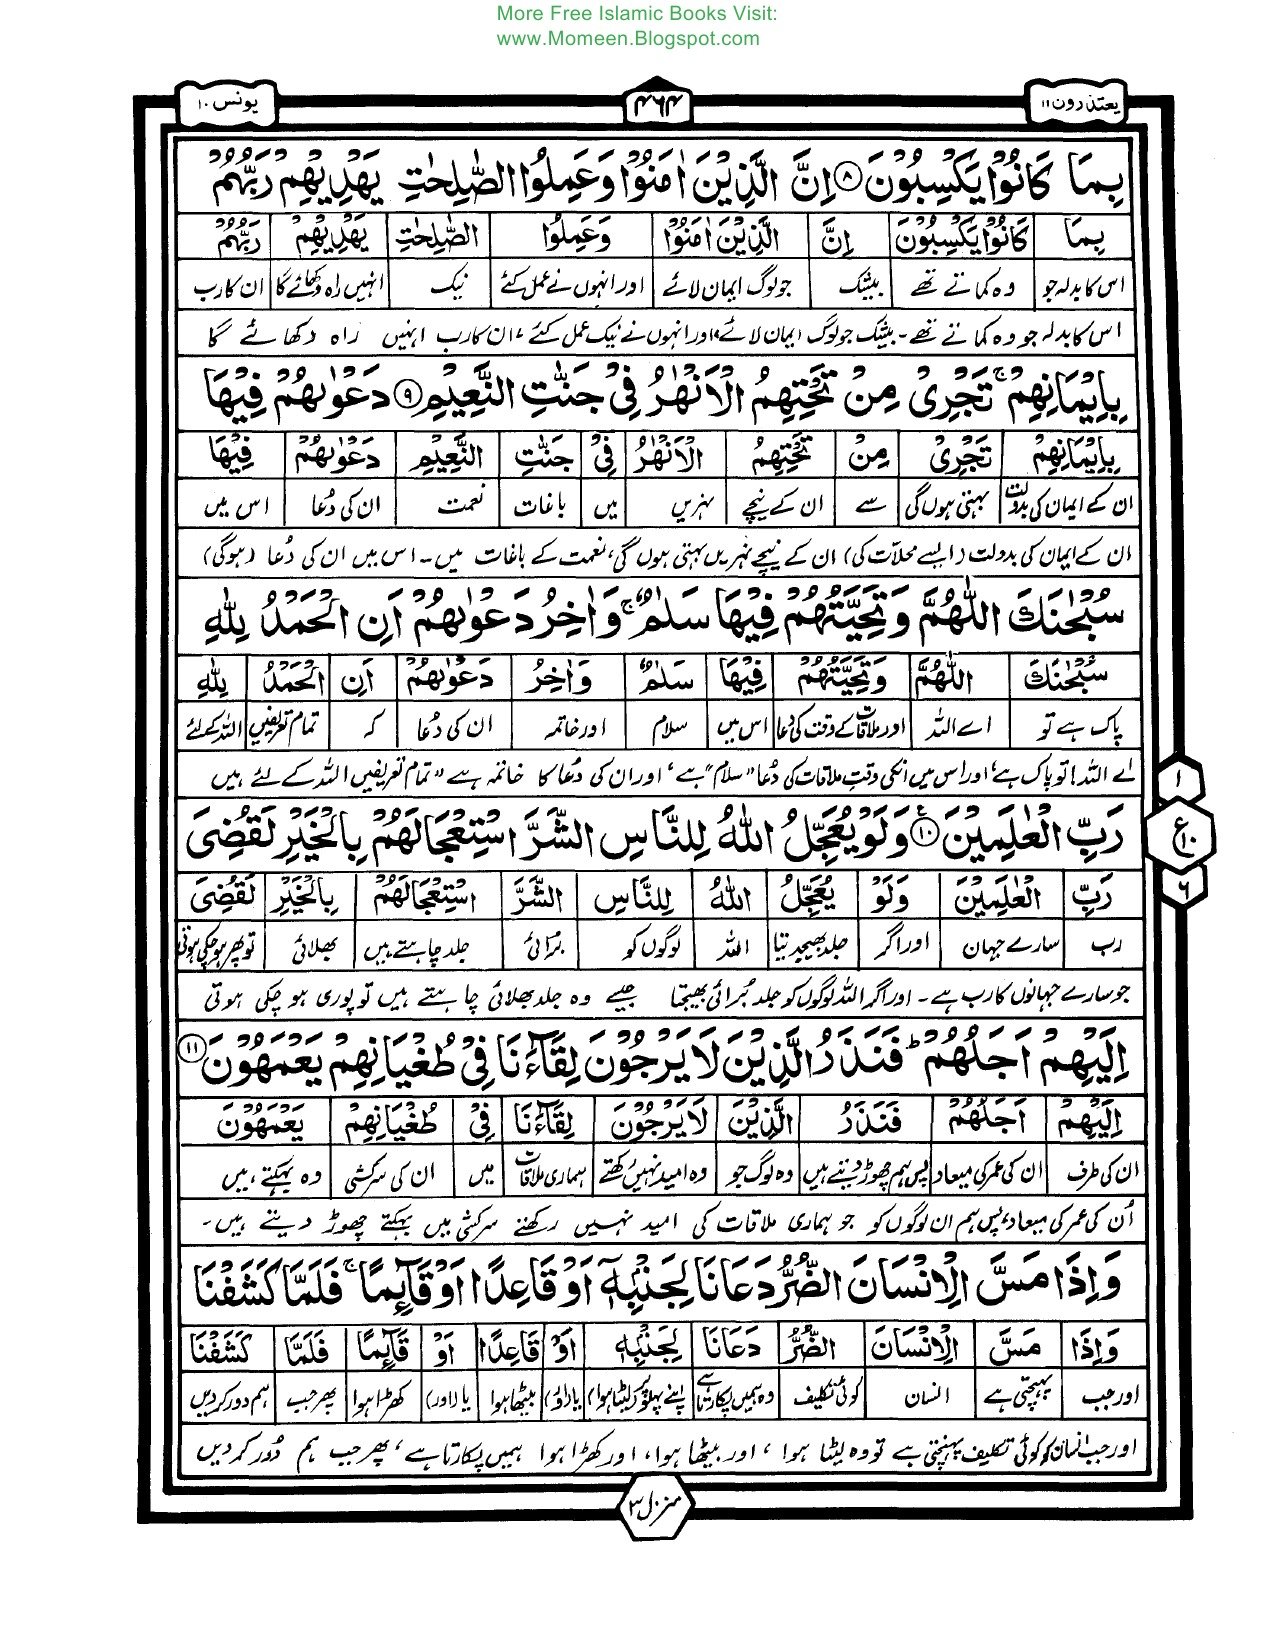 More Free Islamic Books Visit:
www.Momeen.Blogspot.com
یعتذرون ۱۱
۴۶۴
یونس ۱۰
بِمَا كَانُوۡا يَكۡسِبُوۡنَ ﴿۸﴾ اِنَّ الَّذِيۡنَ اٰمَنُوۡا وَعَمِلُوا الصّٰلِحٰتِ يَهۡدِيۡهِمۡ رَبُّهُمۡ
بِمَا كَانُوۡا يَكۡسِبُوۡنَ اِنَّ الَّذِيۡنَ اٰمَنُوۡا وَعَمِلُوا الصّٰلِحٰتِ يَهۡدِيۡهِمۡ رَبُّهُمۡ
اس کا بدلہ جو وہ کماتے تھے بیشک جو لوگ ایمان لائے اور انہوں نے عمل کئے نیک انہیں راہ دکھائے گا ان کا رب
اس کا بدلہ جو وہ کماتے تھے۔ بیشک جو لوگ ایمان لائے اور انہوں نے نیک عمل کئے، ان کا رب انہیں راہ دکھائے گا
بِاِيۡمَانِهِمۡ ۚ تَجۡرِىۡ مِنۡ تَحۡتِهِمُ الۡاَنۡهٰرُ فِىۡ جَنّٰتِ النَّعِيۡمِ ﴿۹﴾ دَعۡوٰىهُمۡ فِيۡهَا
بِاِيۡمَانِهِمۡ تَجۡرِىۡ مِنۡ تَحۡتِهِمُ الۡاَنۡهٰرُ فِىۡ جَنّٰتِ النَّعِيۡمِ دَعۡوٰىهُمۡ فِيۡهَا
ان کے ایمان کی بدولت بہتی ہوں گی سے ان کے نیچے نہریں میں باغات نعمت ان کی دُعا اس میں
ان کے ایمان کی بدولت (ایسے محلات کی) ان کے نیچے نہریں بہتی ہوں گی، نعمت کے باغات میں۔ اس میں ان کی دُعا (ہوگی)
سُبۡحٰنَكَ اللّٰهُمَّ وَ تَحِيَّتُهُمۡ فِيۡهَا سَلٰمٌ ۚ وَاٰخِرُ دَعۡوٰىهُمۡ اَنِ الۡحَمۡدُ لِلّٰهِ
سُبۡحٰنَكَ اللّٰهُمَّ وَتَحِيَّتُهُمۡ فِيۡهَا سَلٰمٌ وَاٰخِرُ دَعۡوٰىهُمۡ اَنِ الۡحَمۡدُ لِلّٰهِ
پاک ہے تو اے اللہ اور ملاقات کے وقت کی دعا اس میں سلام اور خاتمہ ان کی دُعا کہ تمام تعریفیں اللہ کے لئے
اے اللہ! تو پاک ہے، اور اس میں انکی وقتِ ملاقات کی دُعا "سلام" ہے، اور ان کی دُعا کا خاتمہ ہے "تمام تعریفیں اللہ کے لئے ہیں
رَبِّ الۡعٰلَمِيۡنَ ﴿۱۰﴾ وَلَوۡ يُعَجِّلُ اللّٰهُ لِلنَّاسِ الشَّرَّ اسۡتِعۡجَالَهُمۡ بِالۡخَيۡرِ لَقُضِىَ
رَبِّ الۡعٰلَمِيۡنَ وَلَوۡ يُعَجِّلُ اللّٰهُ لِلنَّاسِ الشَّرَّ اسۡتِعۡجَالَهُمۡ بِالۡخَيۡرِ لَقُضِىَ
رب سارے جہان اور اگر جلد بھیجدیتا اللہ لوگوں کو برائی جلد چاہتے ہیں بھلائی تو پھر ہوچکی ہوتی
جو سارے جہانوں کا رب ہے۔ اور اگر اللہ لوگوں کو جلد بُرائی بھیجتا جیسے وہ جلد بھلائی چاہتے ہیں تو پوری ہو چکی ہوتی
اِلَيۡهِمۡ اَجَلُهُمۡ ؕ فَنَذَرُ الَّذِيۡنَ لَا يَرۡجُوۡنَ لِقَآءَنَا فِىۡ طُغۡيَانِهِمۡ يَعۡمَهُوۡنَ ﴿۱۱﴾
اِلَيۡهِمۡ اَجَلُهُمۡ فَنَذَرُ الَّذِيۡنَ لَا يَرۡجُوۡنَ لِقَآءَنَا فِىۡ طُغۡيَانِهِمۡ يَعۡمَهُوۡنَ
ان کی طرف ان کی عمر کی میعاد پس ہم چھوڑ دیتے ہیں وہ لوگ جو وہ امید نہیں رکھتے ہماری ملاقات میں ان کی سرکشی وہ بہکتے ہیں
اُن کی عمر کی میعاد، پس ہم ان لوگوں کو جو ہماری ملاقات کی امید نہیں رکھتے سرکشی میں بہکتے چھوڑ دیتے ہیں۔
وَاِذَا مَسَّ الۡاِنۡسَانَ الضُّرُّ دَعَانَا لِجَنۡۢبِهٖۤ اَوۡ قَاعِدًا اَوۡ قَآٮِٕمًا ۚ فَلَمَّا كَشَفۡنَا
وَاِذَا مَسَّ الۡاِنۡسَانَ الضُّرُّ دَعَانَا لِجَنۡۢبِهٖۤ اَوۡ قَاعِدًا اَوۡ قَآٮِٕمًا فَلَمَّا كَشَفۡنَا
اور جب پہنچتی ہے انسان کوئی تکلیف وہ ہمیں پکارتا ہے اپنے پہلو پر (لیٹا ہوا) یا (اور) بیٹھا ہوا یا (اور) کھڑا ہوا پھر جب ہم دور کردیں
اور جب انسان کو کوئی تکلیف پہنچتی ہے تو وہ لیٹا ہوا، اور بیٹھا ہوا، اور کھڑا ہوا ہمیں پکارتا ہے، پھر جب ہم دُور کر دیں
۱
ع ۱۰
۶
منزل ۳